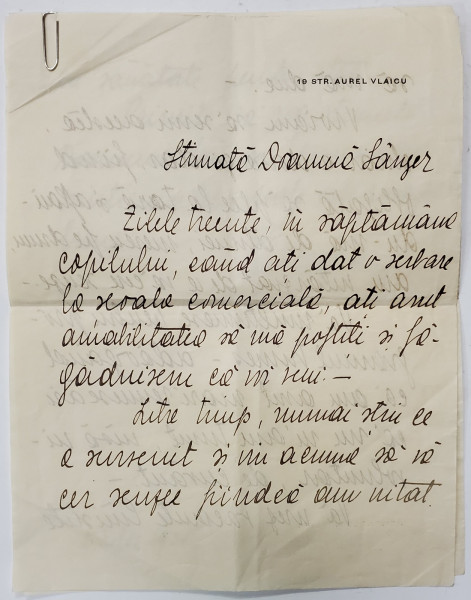 19 STR. AUREL VLAICU
Stimată Doamnă Sânger
Zilele trecute, în săptămâna
copilului, când ați dat o serbare
la școala comercială, ați avut
amabilitatea să mă poftiți și fă-
găduisem că voi veni. —
Între timp, numai știu ce
a survenit și vin acuma să vă
cer scuze fiindcă am uitat.